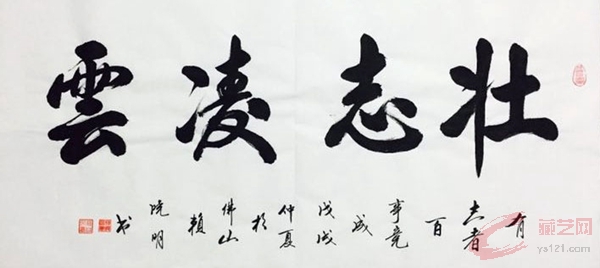 壮志凌雲
有志者百事竟成戊戌仲夏於佛山賴晓明书
藏艺网
ys121.com